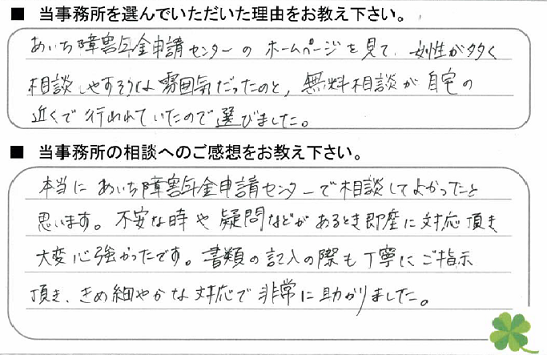 ■ 当事務所を選んでいただいた理由をお教え下さい。
あいち障害年金申請センターの ホームページを見て、女性が多く
相談しやすそうな雰囲気だったのと、無料相談が自宅の
近くで行われていたので選びました。
■ 当事務所の相談へのご感想をお教え下さい。
本当に あいち障害年金申請センターで相談してよかったと
思います。不安な時や疑問などがあるとき即座に対応頂き
大変心強かったです。書類の記入の際も丁寧にご指示
頂き、きめ細やかな対応で非常に助かりました。